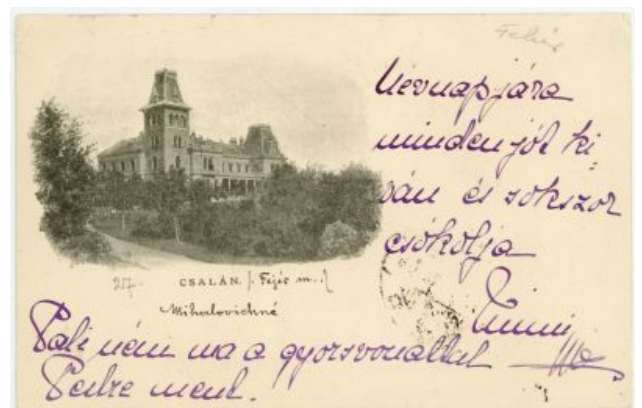 Fehér
Névnapjára
minden jót ki-
ván és sokszor
csókolja
CSALÁN. (Fejér m.)
Mihalovichné
Pali néni ma a gyorsvonattal
Pestre ment.